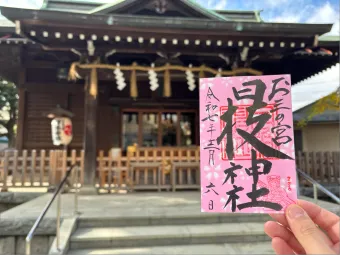 お三の宮
日枝神社
令和七年十二月六日